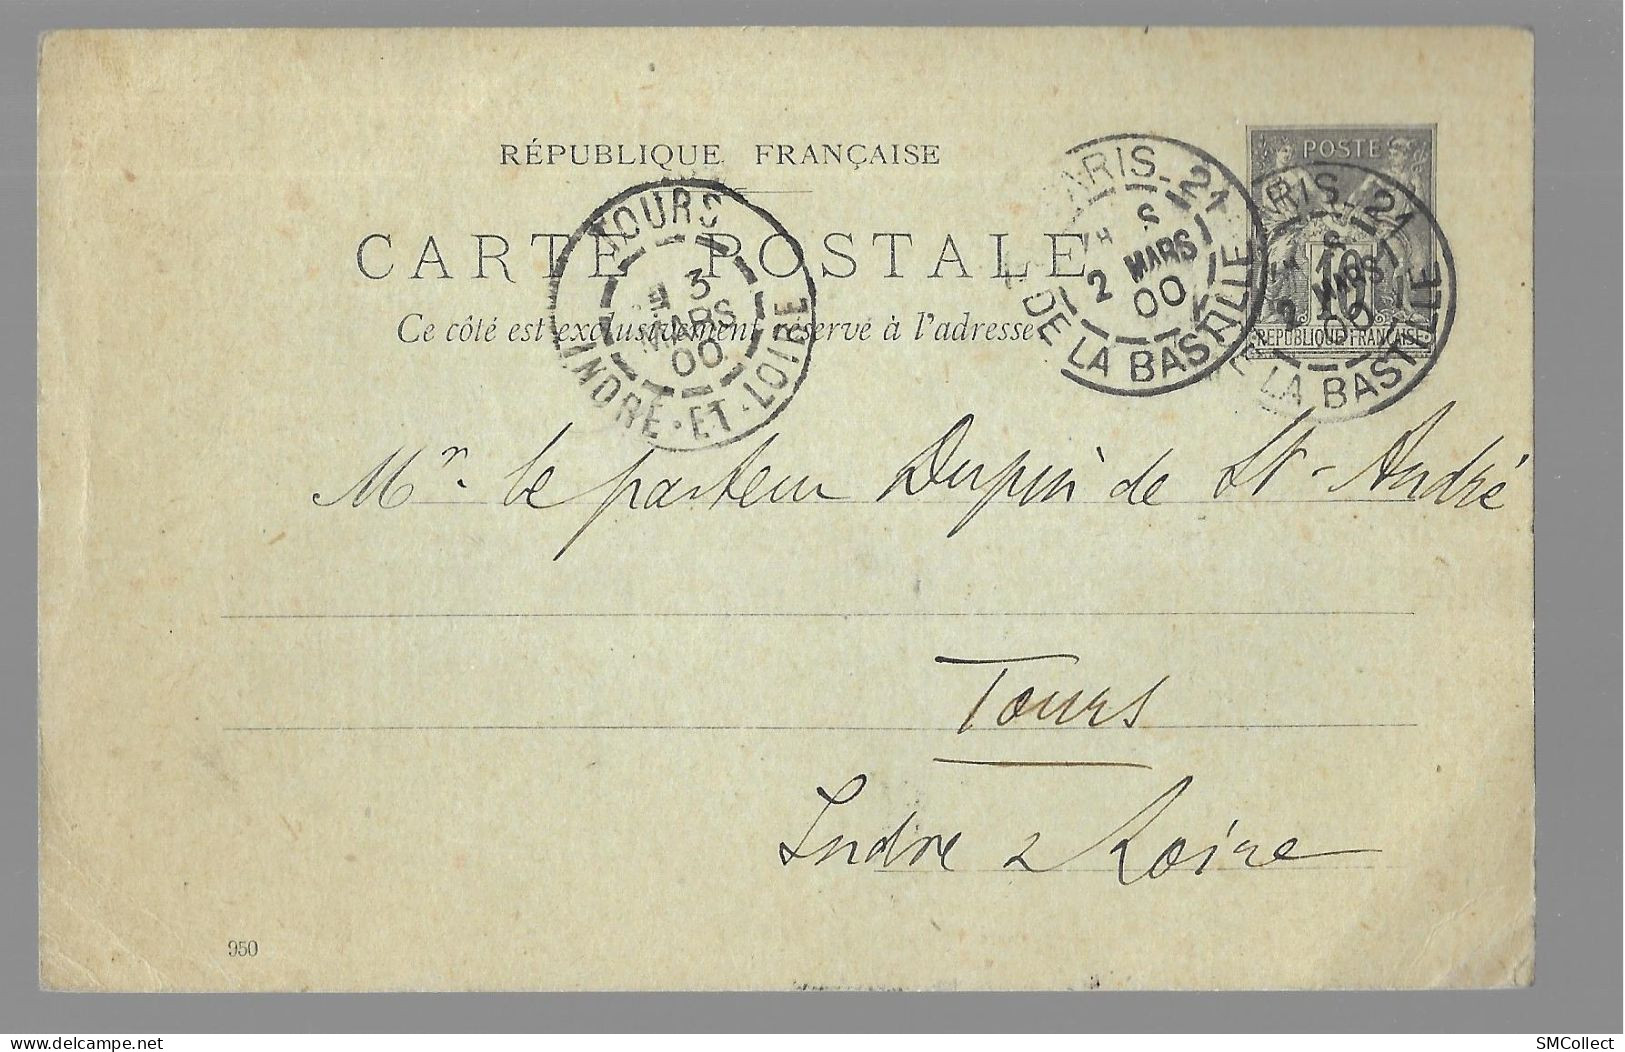 RÉPUBLIQUE FRANÇAISE
CARTE POSTALE
Ce côté est exclusivement réservé à l'adresse
TOURS
3
MARS
00
INDRE-ET-LOIRE
PARIS_21
2 MARS
00
DE LA BASTILLE
POSTE
10
RÉPUBLIQUE FRANÇAISE
ARIS_21
2 MARS
00
LA BASTILLE
Mr. le pasteur Dupin de St-André
Tours
Indre & Loire
950
SMCollect